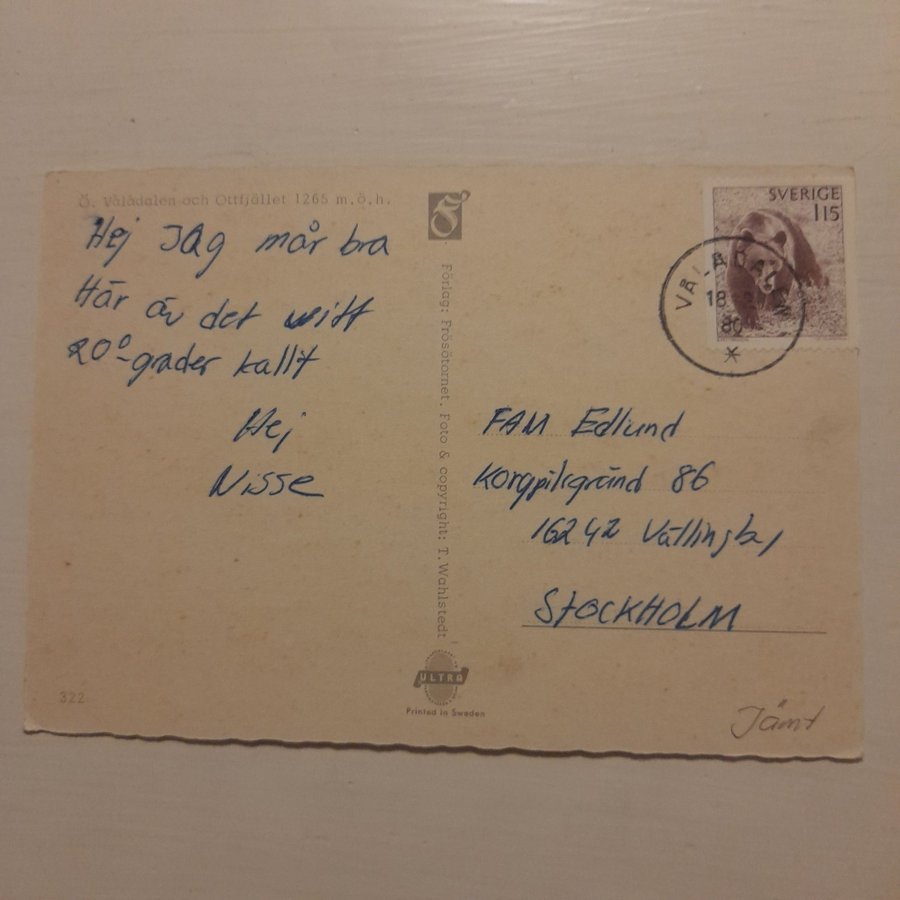 Ö. Vålådalen och Ottfjället 1265 m.ö.h.
Hej JAg mår bra
Här är det
20°-grader kallt
Hej
Nisse
Förlag: Frösötornet. Foto & copyright: T. Wahlstedt
ULTRA
Printed in Sweden
322
SVERIGE
115
VÅLÅDALEN
18
80
FAM Edlund
Korgpilsgränd 86
16242 Vällingby
STOCKHOLM
Jämt